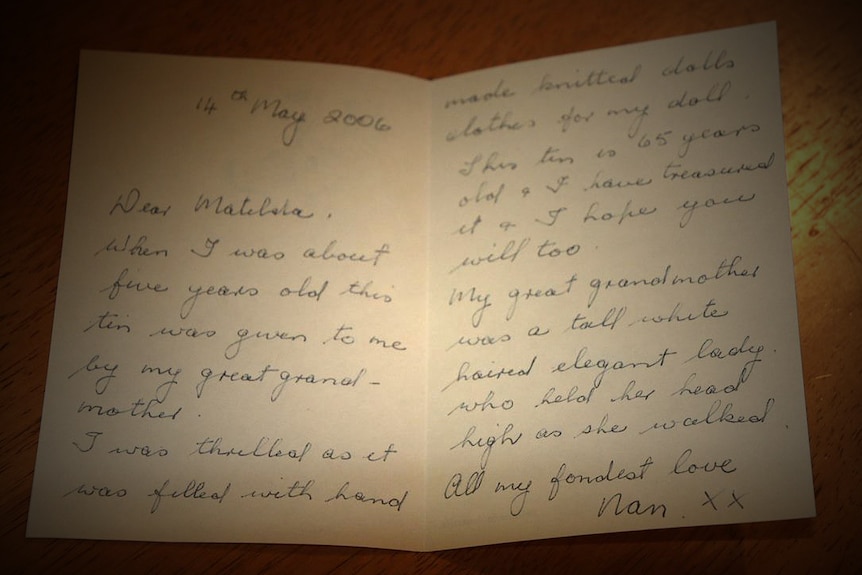 14th May 2006
Dear Matilda.
When I was about
five years old this
tin was given to me
by my great grand-
mother.
I was thrilled as it
was filled with hand
made knitted dolls
clothes for my doll.
This tin is 65 years
old & I have treasured
it & I hope you
will too.
My great grandmother
was a tall white
haired elegant lady.
who held her head
high as she walked.
All my fondest love
Nan. XX